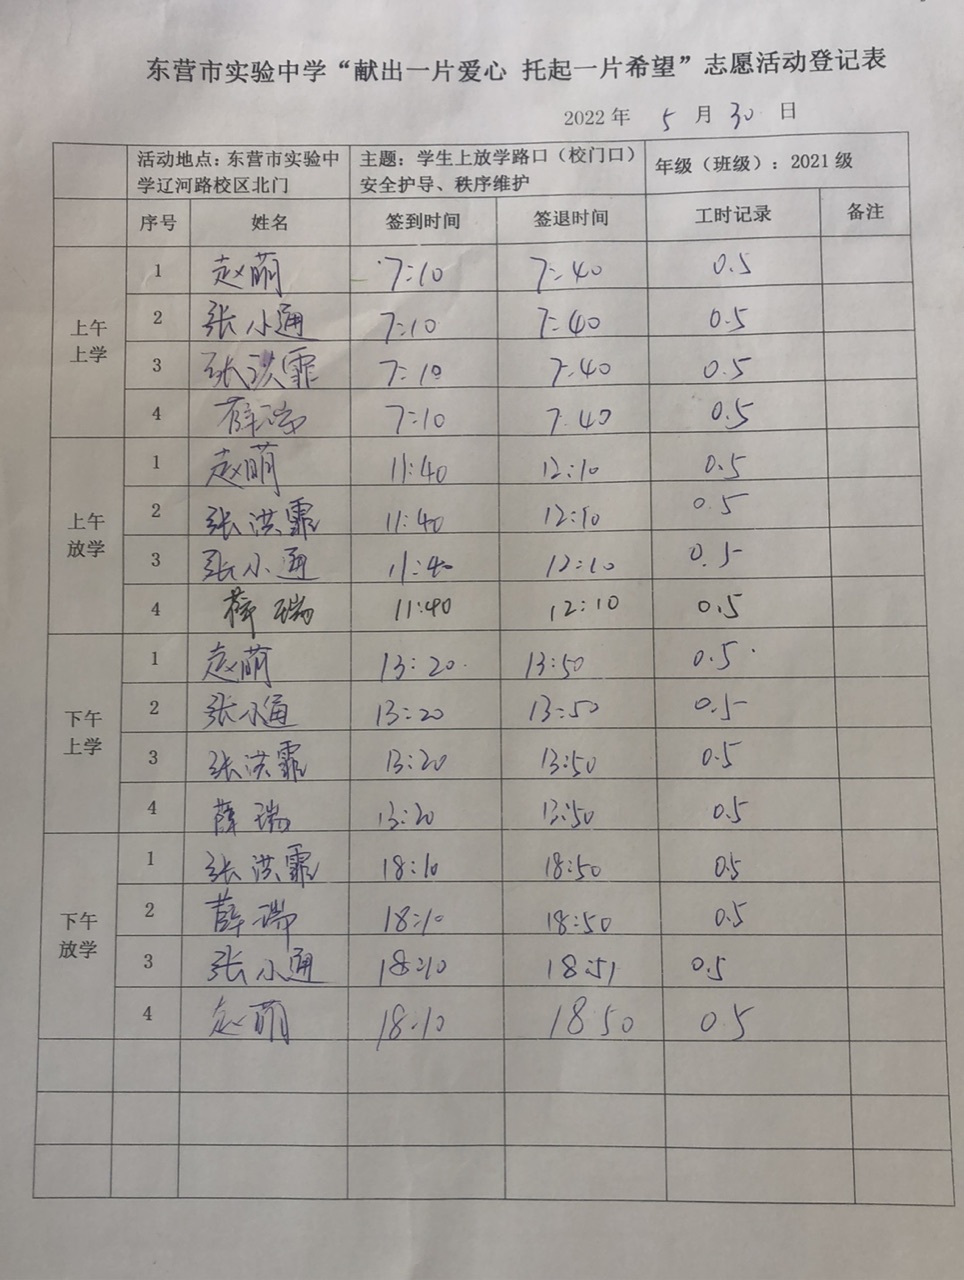 东营市实验中学“献出一片爱心 托起一片希望”志愿活动登记表
2022 年 5 月 30 日
活动地点：东营市实验中学辽河路校区北门 主题：学生上放学路口（校门口）安全护导、秩序维护 年级（班级）：2021 级
序号 姓名 签到时间 签退时间 工时记录 备注
上午上学
1 赵萌 7:10 7:40 0.5
2 张小通 7:10 7:40 0.5
3 张洪霏 7:10 7:40 0.5
4 薛瑞 7:10 7:40 0.5
上午放学
1 赵萌 11:40 12:10 0.5
2 张洪霏 11:40 12:10 0.5
3 张小通 11:40 12:10 0.5
4 薛瑞 11:40 12:10 0.5
下午上学
1 赵萌 13:20 13:50 0.5
2 张小通 13:20 13:50 0.5
3 张洪霏 13:20 13:50 0.5
4 薛瑞 13:20 13:50 0.5
下午放学
1 张洪霏 18:10 18:50 0.5
2 薛瑞 18:10 18:50 0.5
3 张小通 18:10 18:51 0.5
4 赵萌 18:10 18:50 0.5